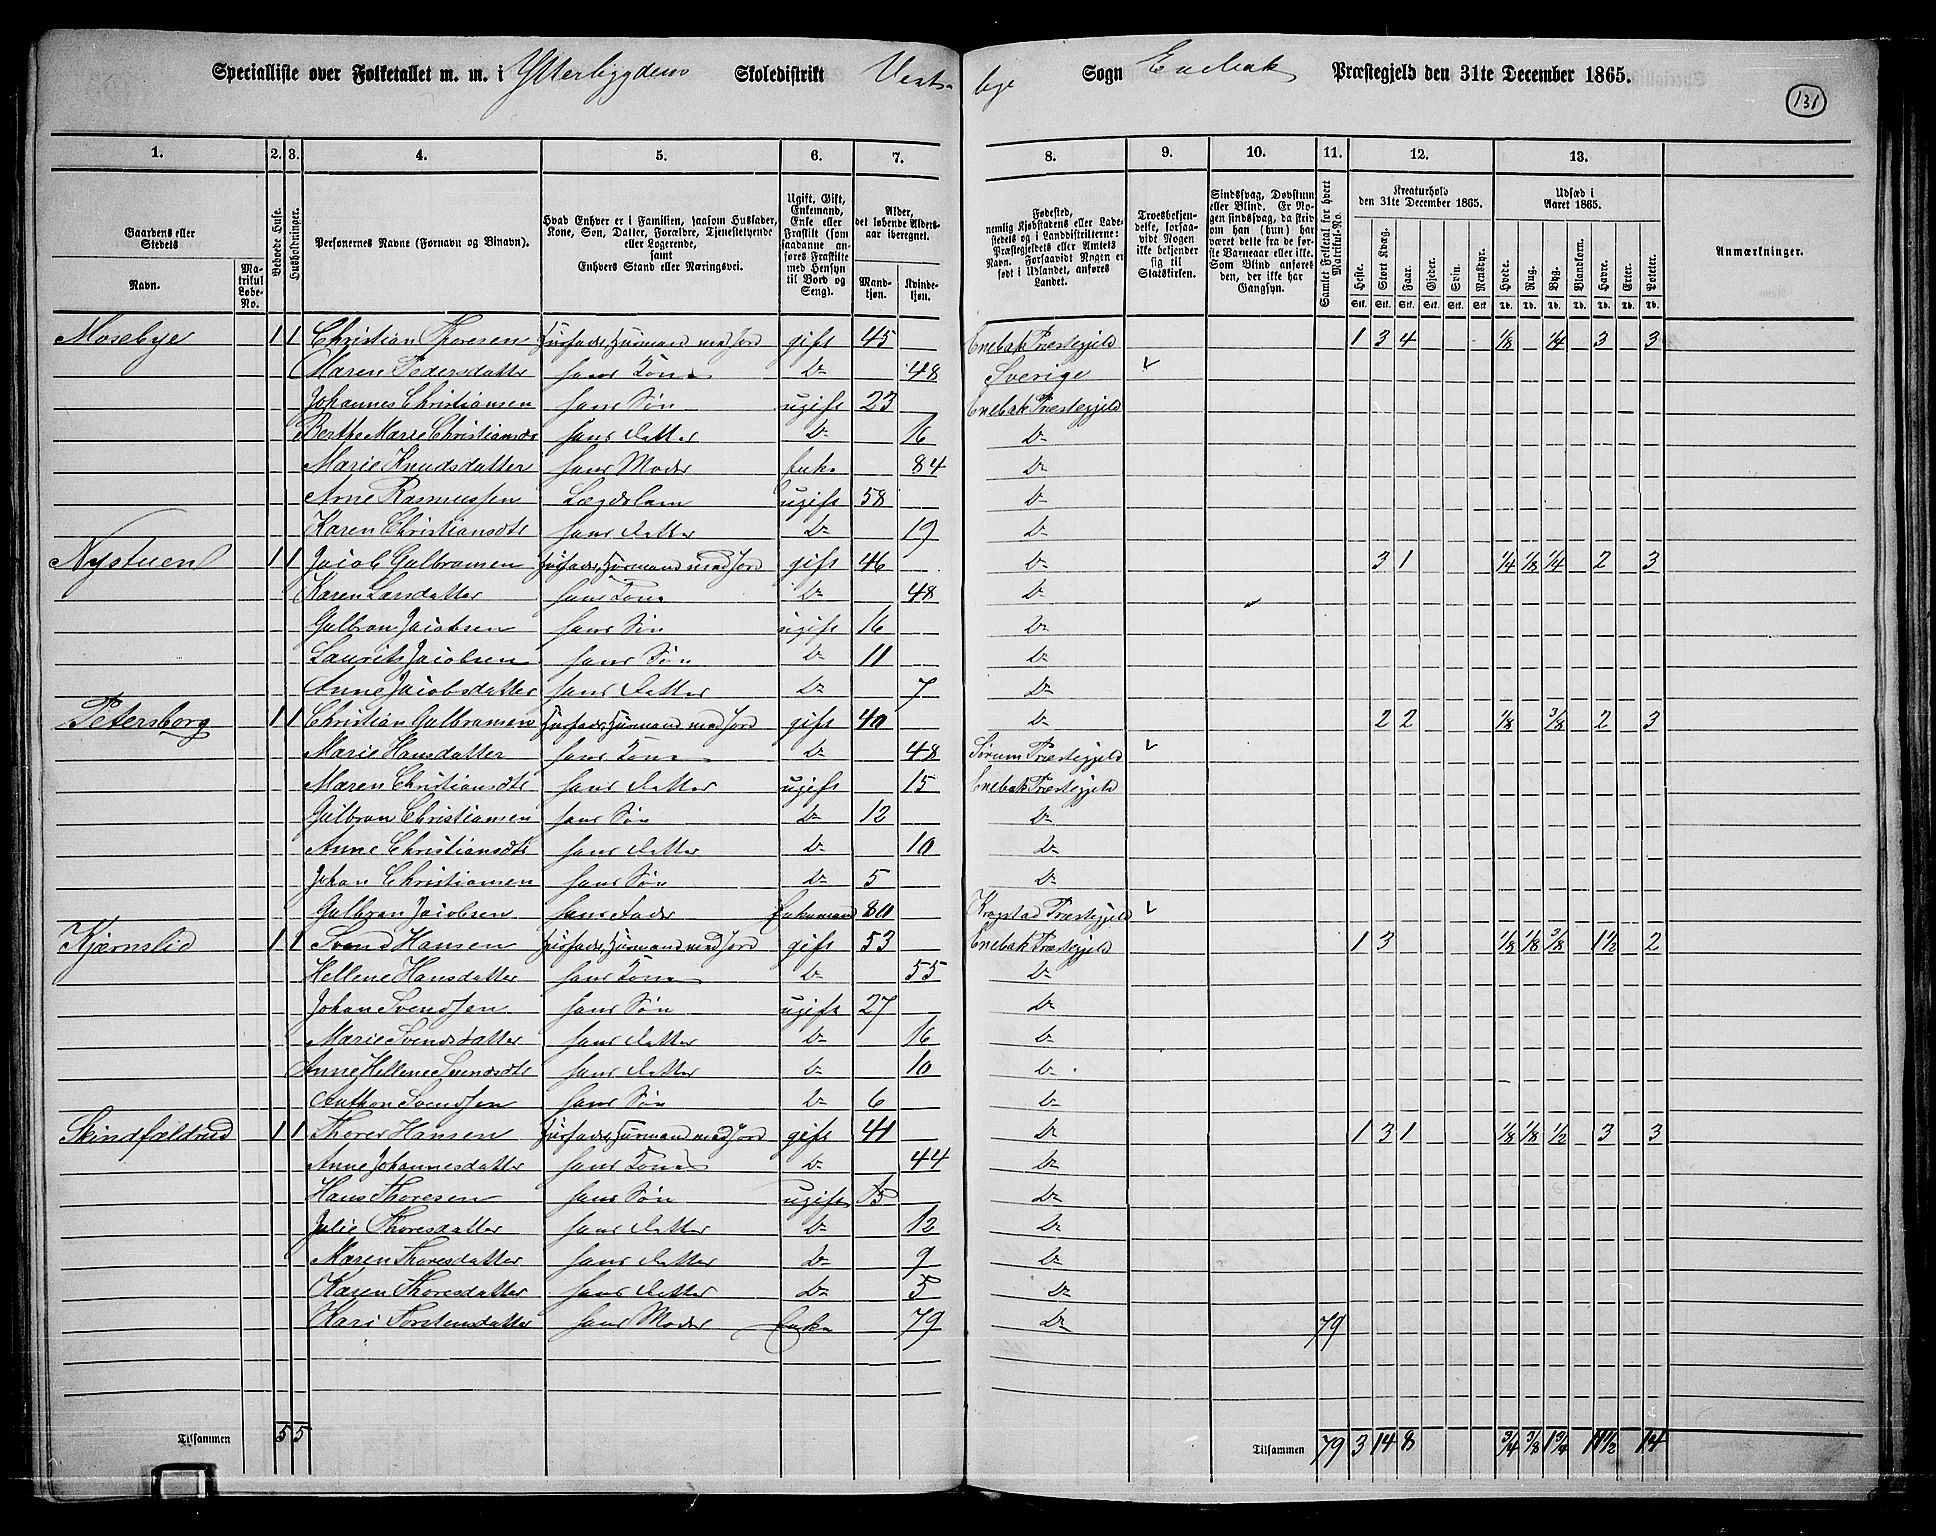 Specialliste over Folketallet m. m. i Ytterbygdens Skoledistrikt Vestbye Sogn Enebak Præstegjeld den 31te December 1865.
131
1. 2. 3. 4. 5. 6. 7. 8. 9. 10. 11. 12. 13.
Gaardens eller Stedets
Navn.
Matrikul Løbe-No.
Beboede Huse.
Husholdninger.
Personernes Navne (Fornavn og Binavn).
Hvad Enhver er i Familien, saasom Husfader, Kone, Søn, Datter, Forældre, Tjenestetyende eller Logerende, samt Enhvers Stand eller Næringsvei.
Ugift, Gift, Enkemand, Enke eller Fraskilt (som saadanne anføres Fraskilte med Hensyn til Bord og Seng).
Alder, det løbende Aldersaar iberegnet.
Mandkjøn. Kvindekjøn.
Fødested, nemlig Kjøbstadens eller Ladestedets og i Landdistrikterne: Præstegjeldets eller Amtets Navn. Forsaavidt Nogen er født i Udlandet, anføres Landet.
Troesbekjendelse, forsaavidt Nogen ikke bekjender sig til Statskirken.
Sindssvag, Døvstum eller Blind. Er Nogen sindssvag, da skrives om han (hun) har været dette fra de første Barneaar eller ikke. Som Blind anføres den, der ikke har Gangsyn.
Samlet Folketal for hvert Matrikul-No.
Kreaturhold den 31te December 1865.
Heste. Stort Kvæg. Faar. Gjeder. Svin. Rensdyr.
Udsæd i Aaret 1865.
Hvede. Rug. Byg. Blandkorn. Havre. Erter. Poteter.
Anmærkninger.
Mosebye 1 1 Christian Thoresen Husfader, Husmand med Jord gift 45 Enebak Præstegjeld 1 3 4 1/8 1/4 3 3
Maren Pedersdatter hans Kone Do 48 Sverige
Johannes Christiansen hans Søn ugift 23 Enebak Præstegjeld
Berthe Marie Christiansdr hans Datter Do 16 Do
Marie Knudsdatter hans Moder Enke 84 Do
Arne Rasmussen Lægdslam ugift 58 Do
Karen Christiansdtr hans Datter Do 19 Do
Nystuen 1 1 Jacob Gulbransen Husfader, Husmand med Jord gift 46 Do 3 1 1/4 1/8 1/4 2 3
Karen Larsdatter hans Kone Do 48 Do
Gulbran Jacobsen hans Søn ugift 16 Do
Laurits Jacobsen hans Søn Do 11 Do
Anne Jacobsdatter hans Datter Do 7 Do
Petersborg 1 1 Christian Gulbransen Husfader, Husmand med Jord gift 40 Do 2 2 1/8 3/8 2 3
Marie Hansdatter hans Kone Do 48 Sørum Præstegjeld
Maren Christiansdtr hans Datter ugift 15 Enebak Præstegjeld
Gulbran Christiansen hans Søn Do 12 Do
Anne Christiansdtr hans Datter Do 10 Do
Johan Christiansen hans Søn Do 5 Do
Gulbran Jacobsen hans Fader Enkemand 80 Kragstad Præstegjeld
Kjærnslid 1 1 Svend Hansen Husfader, Husmand med Jord gift 53 Enebak Præstegjeld 1 3 1/8 1/8 3/8 1 1/2 2
Hellene Hansdatter hans Kone Do 55 Do
Johan Svendsen hans Søn ugift 27 Do
Marie Svendsdatter hans Datter Do 16 Do
Anne Hellene Svendsdtr hans Datter Do 10 Do
Anthon Svendsen hans Søn Do 6 Do
Skindfældrud 1 1 Thorer Hansen Husfader, Husmand med Jord gift 41 Do 1 3 1 1/8 1/8 1/2 3 3
Anne Johannesdatter hans Kone Do 44 Do
Hans Thoresen hans Søn ugift 15 Do
Julie Thoresdatter hans Datter Do 12 Do
Maren Thoresdatter hans Datter Do 9 Do
Karen Thoresdatter hans Datter Do 5 Do
Kari Torstensdatter hans Moder Enke 79 Do 79
Tilsammen 5 5 Tilsammen 79 3 14 8 3/4 3/8 1 3/4 11 1/2 14